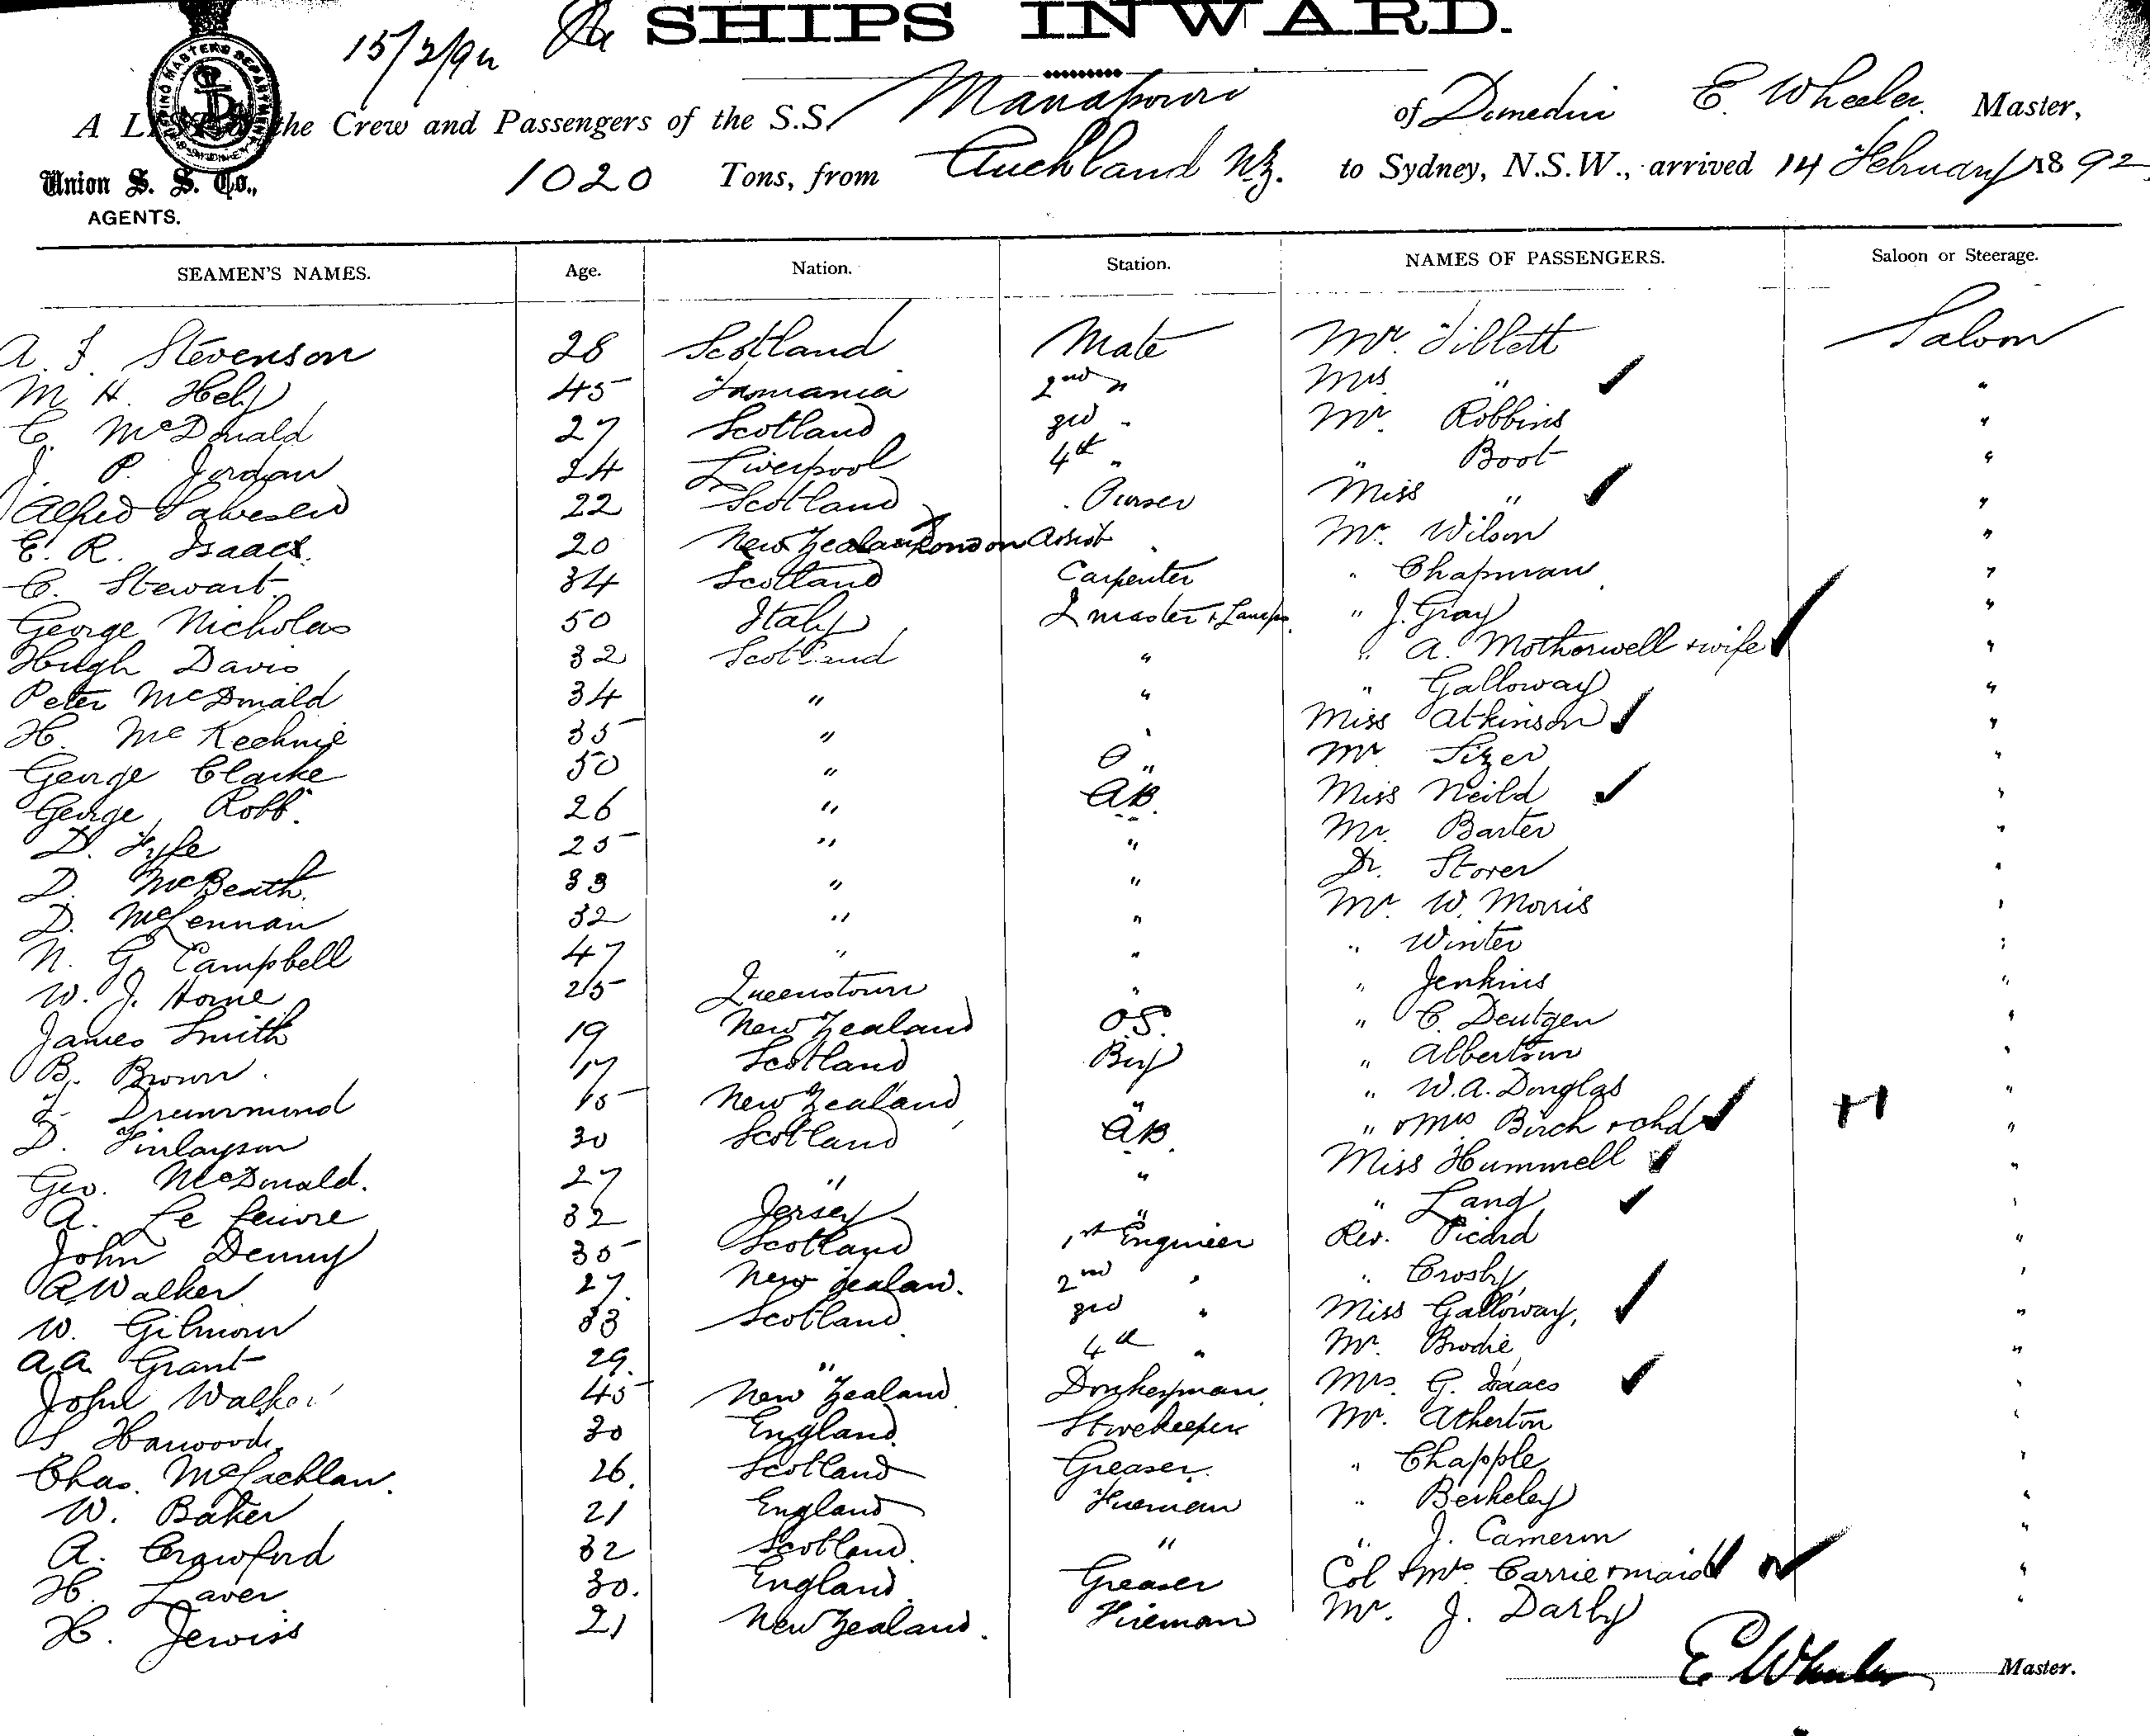 SHIPS INWARD.
15/2/92
A LIST of the Crew and Passengers of the S.S. Manapouri of Dunedin E. Wheeler Master,
Union S. S. Co., AGENTS. 1020 Tons, from Auckland NZ. to Sydney, N.S.W., arrived 14 February 1892
SEAMEN'S NAMES. Age. Nation. Station. NAMES OF PASSENGERS. Saloon or Steerage.
A. F. Stevenson 28 Scotland Mate Mr. Tiblett Saloon
M H. Hely 45 Tasmania 2nd " Mrs " "
C. McDonald 27 Scotland 3rd " Mr. Robbins "
J. P. Jordan 24 Liverpool 4th " " Boot "
Alfred 22 Scotland Purser Miss " "
E. R. Isaacs. 20 New Zealand London Assist " Mr. Wilson "
C. Stewart 34 Scotland Carpenter " Chapman "
George Nicholas 50 Italy Q master & Lamps " J. Gray "
Hugh Davis 32 Scotland " " A. Motherwell & wife "
Peter McDonald 34 " " " Galloway "
H. McKechnie 35 " " Miss Atkinson "
George Clarke 50 " " Mr Sizer "
George Robb. 26 " AB. Miss Neild "
D. Fyfe 25 " " Mr. Barter "
D. McBeath. 33 " " Dr. Storer "
D. McLennan 32 " " Mr. W. Morris "
N. G. Campbell 47 " " " Winter "
W. J. Horne 25 Queenstown " " Jenkins "
James Smith 19 New Zealand OS. " C. Deutgen "
B. Brown. 17 Scotland Boy " Albertson "
Drummond 15 New Zealand " " W. A. Douglas "
D. Finlayson 30 Scotland AB. " & Mrs Birch & chd "
Geo. McDonald. 27 " " Miss Hummell "
A. Le feuvre 32 Jersey " " Lang "
John Denny 35 Scotland 1st Engineer Rev. Picard "
A Walker 27. New Zealan. 2nd " " Crosby "
W. Gilmour 33 Scotland 3rd " Miss Galloway, "
A. A. Grant 29. " 4th " Mr. Brodie "
John Walker 45 New Zealand Donkeyman Mrs. G. Isaacs "
Harwood 30 England Storekeeper Mr. Atherton "
Chas. McLachlan. 26. Scotland Greaser. " Chapple "
W. Baker 21 England Fireman " Berkeley "
A. Crawford 32 Scotland " " J. Cameron "
H. Laver 30. England Greaser Col & Mrs. Carrie & maid "
H. Jewiss 21 New Zealand. Fireman Mr. J. Darby "
E Wheeler Master.